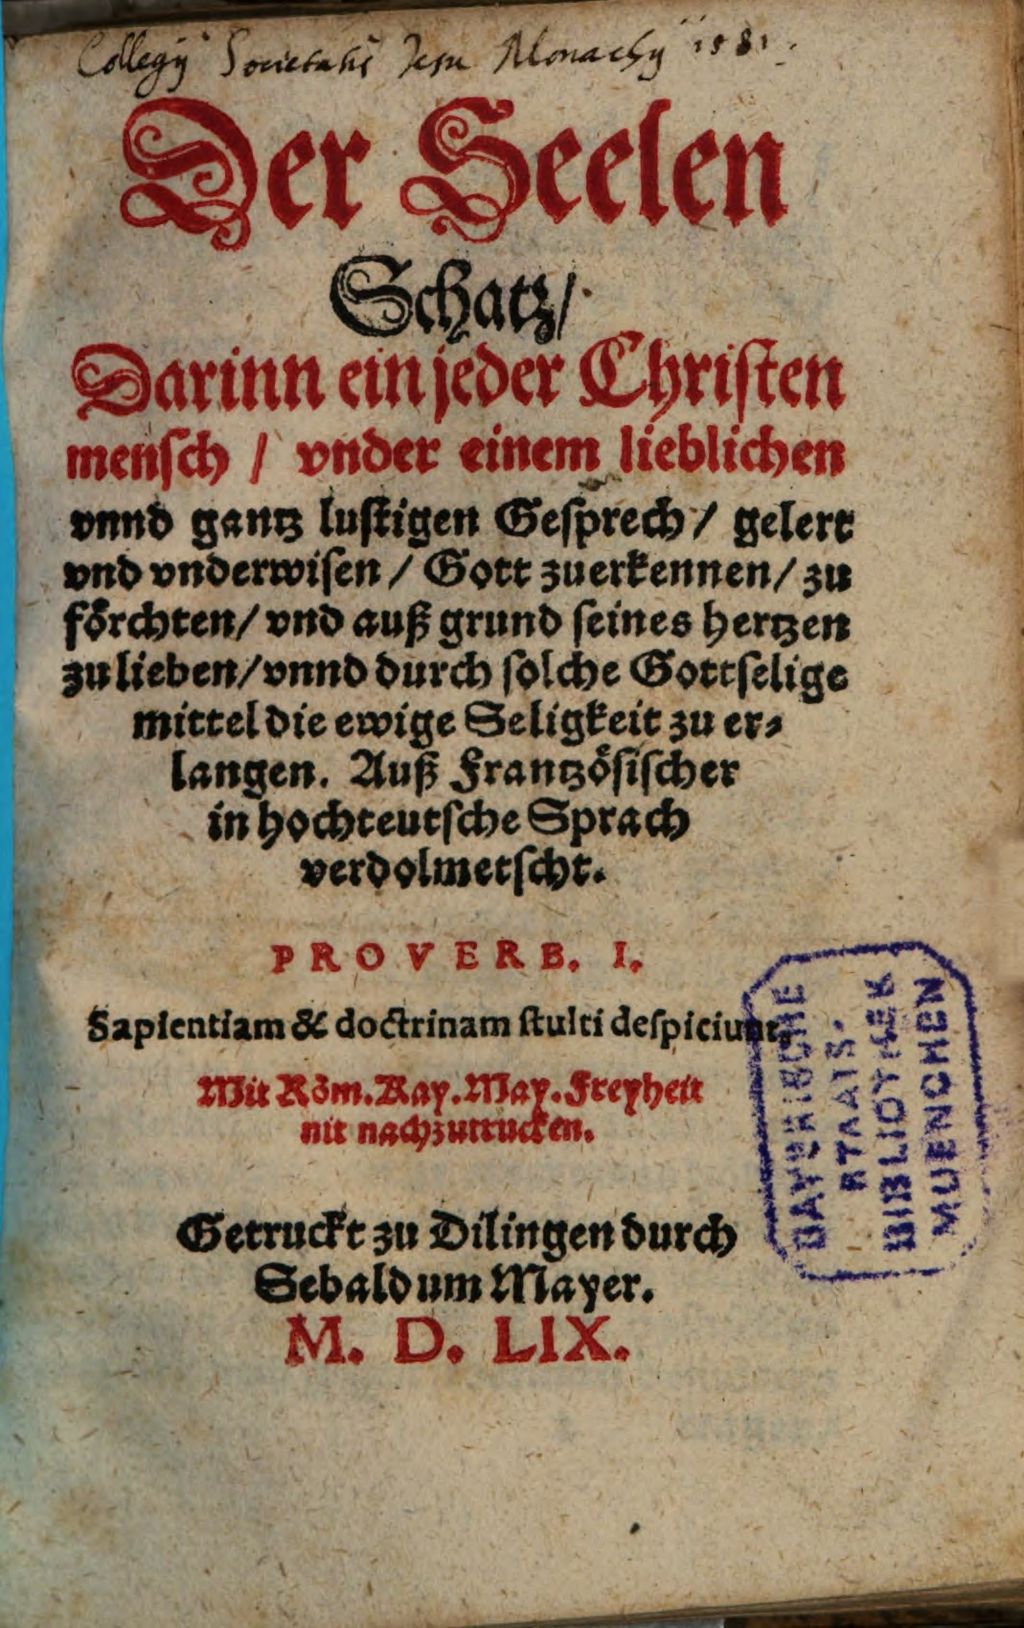 Collegij Societatis Jesu Monachij 1581.
Der Seelen
Schatz/
Darinn ein jeder Christen
mensch / vnder einem lieblichen
vnnd gantz lustigen Gesprech / gelert
vnd vnderwisen / Gott zuerkennen / zu
förchten / vnd auß grund seines hertzen
zu lieben / vnnd durch solche Gottselige
mittel die ewige Seligkeit zu er⸗
langen. Auß Frantzösischer
in hochteutsche Sprach
verdolmetscht.
PROVERB. I.
Sapientiam & doctrinam stulti despiciunt.
Mit Röm. Kay. May. Freyheit
nit nachzutrucken.
Getruckt zu Dilingen durch
Sebaldum Mayer.
M. D. LIX.
BAYERISCHE
STAATS-
BIBLIOTHEK
MUENCHEN